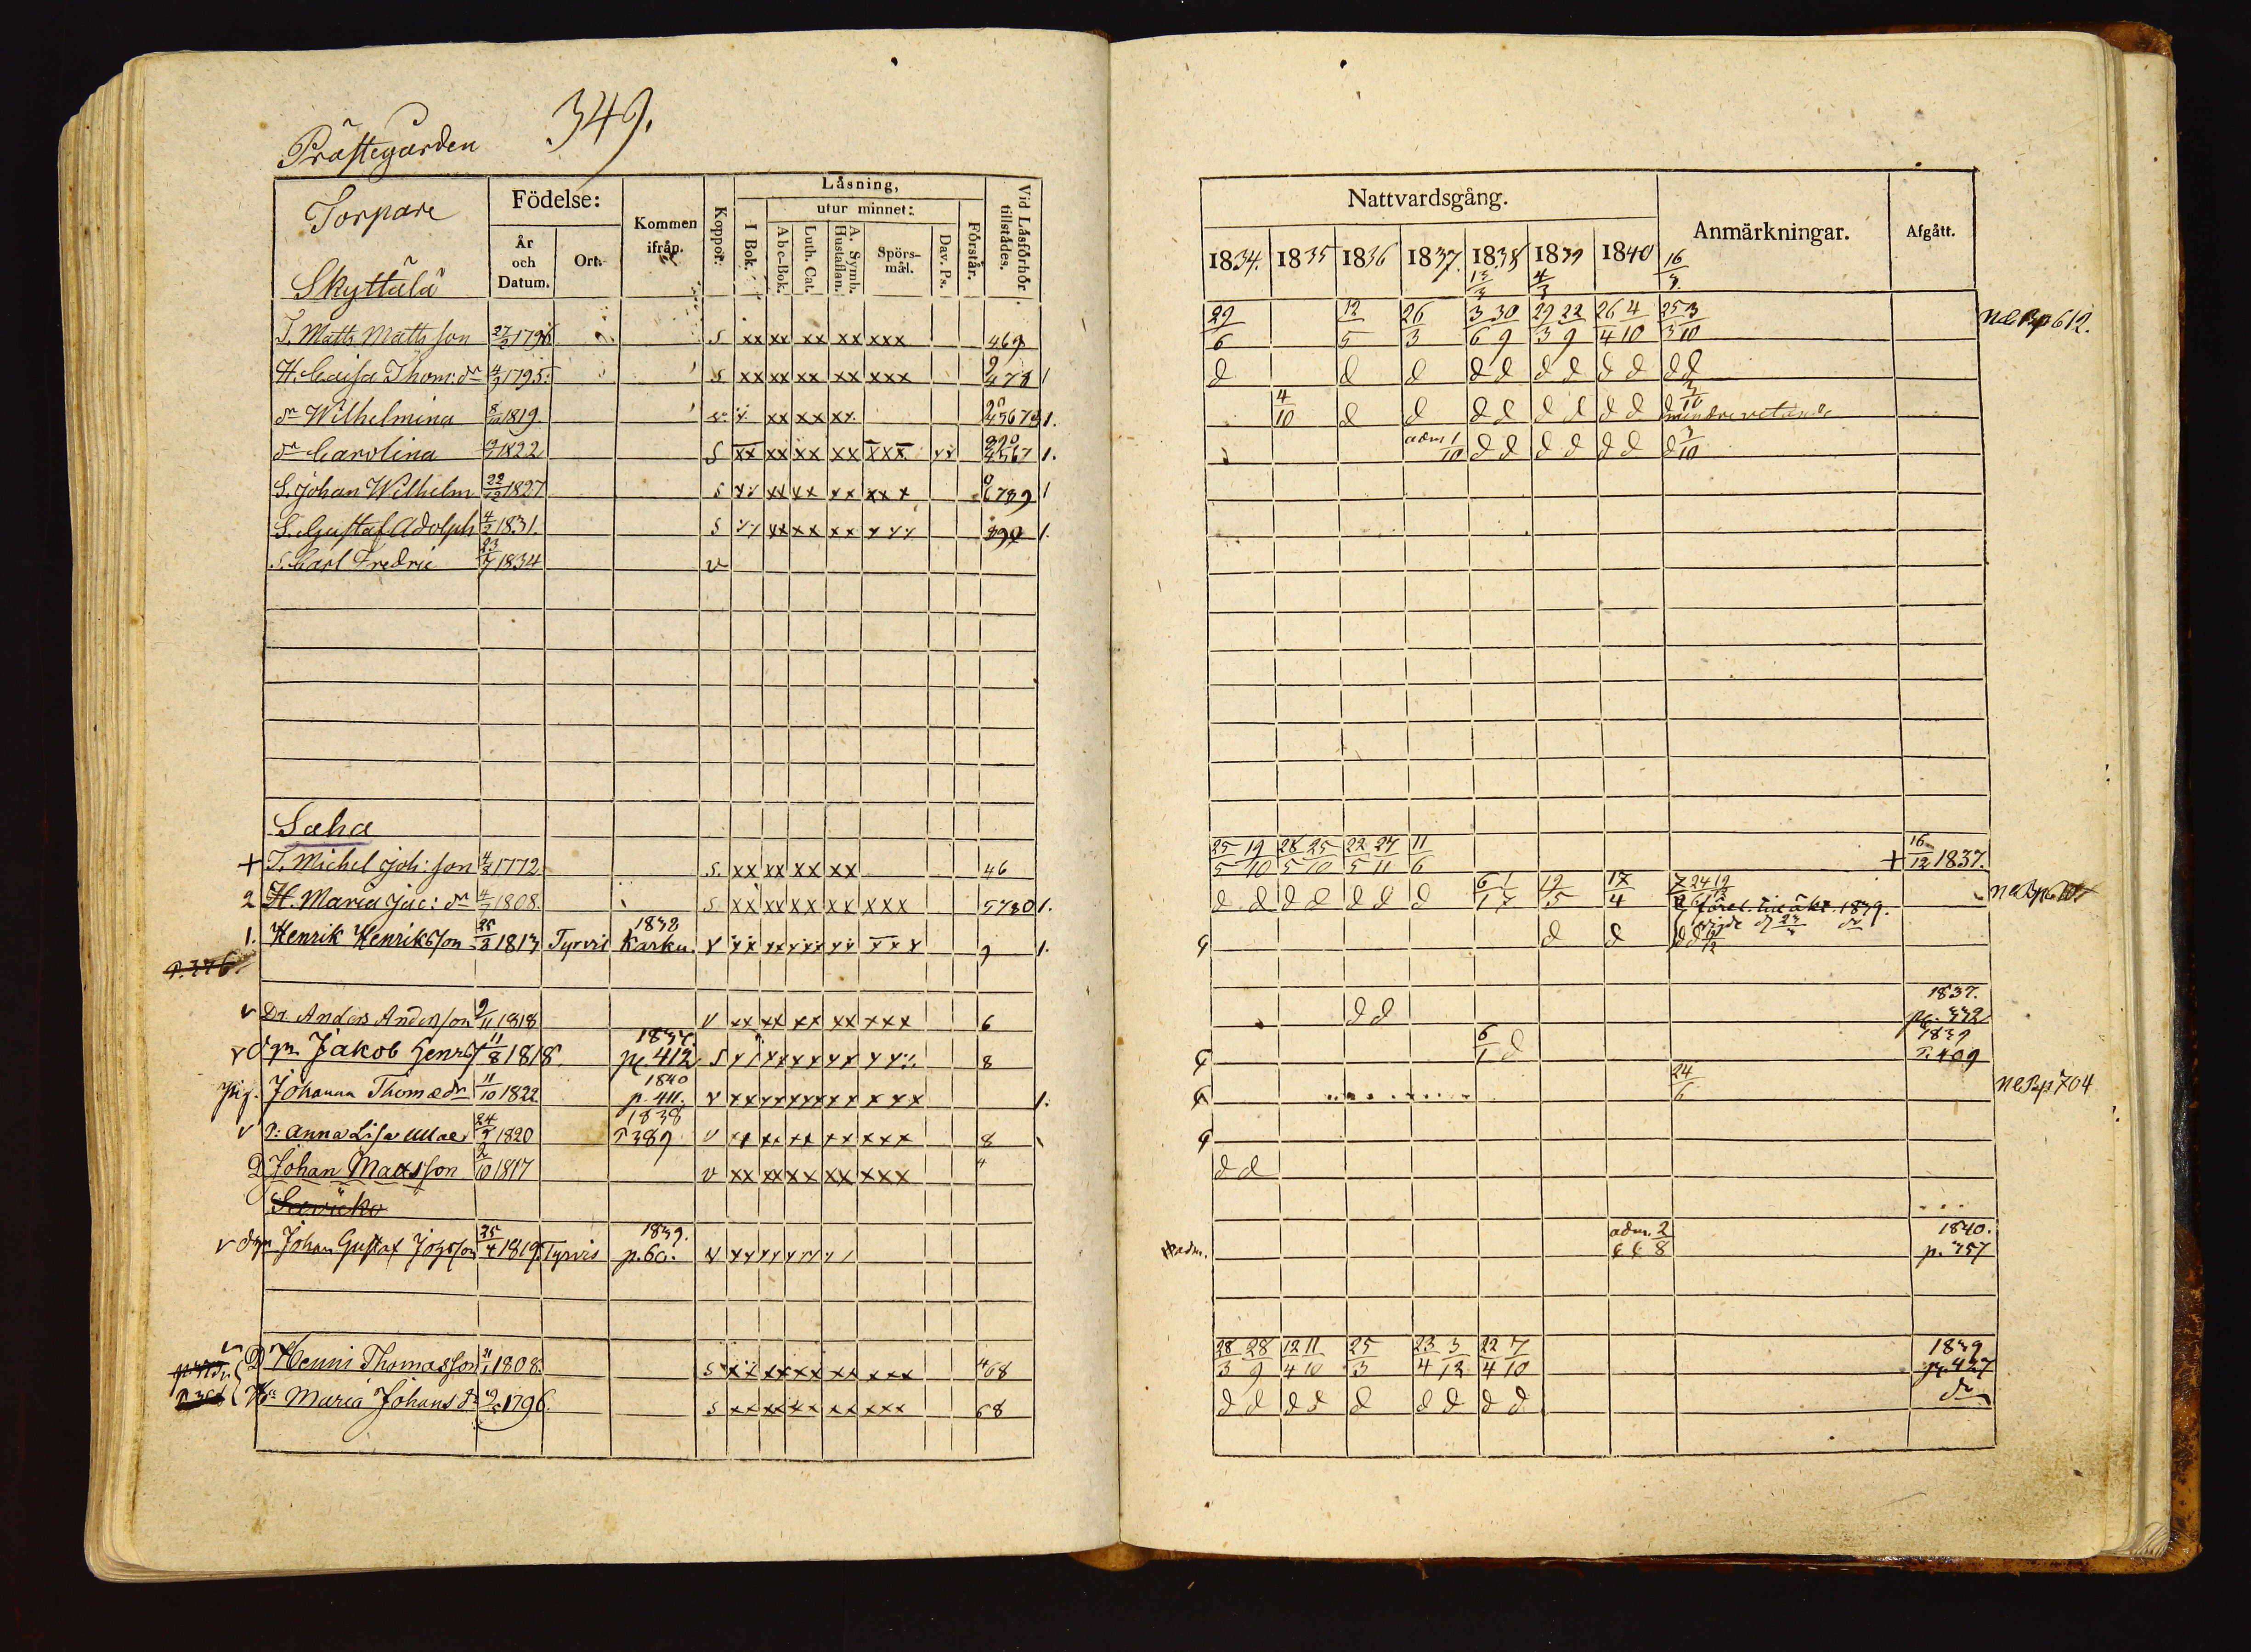 349.
Prästegården
Torpare
Skyttälä
Födelse:
År och Datum.
Ort.
Kommen ifrån.
Koppor.
Läsning,
I Bok.
utur minnet:
A b c-Bok.
Luth. Cat.
A. Symb. Hustaflan.
Spörsmål.
Dav. Ps.
Förstår.
Vid Läsförhör tillstådes.
Nattvardsgång.
1834. 1835 1836 1837. 1838 1839 1840
Anmärkningar.
Afgått.
T. Matts Matts son 27/2 1796 S xx xx xx xx xxx 469 29/6 12/5 26/3 3/6 30/9 29/3 22/9 26/4 4/10 25/3 3/10 NB p 612.
H. Caisa Thom: dr 4/3 1795. S. xx xx xx xx xxx 1 d d d d d d d d d d d
dr Wilhelmina 1819. xx xx xx 1. 4/10 d d d d d d d d d 3/10 mindre vetande
dr Carolina 1822 S xx xx xx xx xxx 4567 1. adm 1/10 d d d d d d d 3/10
S. Johan Wilhelm 22/12 1827 S xx xx xx xxx 6789 1
S. Gustaf Adolph 4/2 1831. S xx xx xx 890 1.
S. Carl Fredric 23/7 1834 v
Saha
+ T. Michel Joh: son 4/2 1772 S. xx xx xx xx 46 25/5 19/10 28/5 25/10 22/5 27/11 11/6 + 16/12 1837.
2 H. Maria Jac: dr 1808. S xx xx xx xx xxx 5780 1. d d d d d d d 6/1 12/5 17/4 föret. till äkt. 1839.
1. Henrik Henriksson 25/3 1813 Tyrvis 1832 Karku v xx xx xx xx xxx 9 1. d d vigde
p. 376
v Dr Anders Anderson 9/11 1818 v xx xx xx xx xxx 6 d d 1837. pg. 332
v dgr Jakob Henrs 11/8 1818. 1837. pg. 412 S 8 6/1 d 1839 P. 409
pig. Johanna Thomædr 11/10 1822 1840 p. 411. v xx xx xx xx x xx 1. 24/6 NB p 704
v P: Anna Lisa 24/9 1820 1838 P 389 v xx xx xx xx xxx 8
D Johan Matsson 2/10 1817 v xx xx xx xx xxx 4 d d
Sawicko
v dgr Johan Gustaf 25/4 1819. Tyrvis 1839. p. 60. v adm. adm. 2/8 1840. p. 357
v D Henni Thomasson 21/1 1808. S xx xx xx xx xxx 468 28/3 28/9 12/4 11/10 25/3 23/4 3/12 22/4 7/10 1839 pg. 427
Maria Johans dr 1796. S xx xx xx xx xxx 68 d d d d d d d d d dr